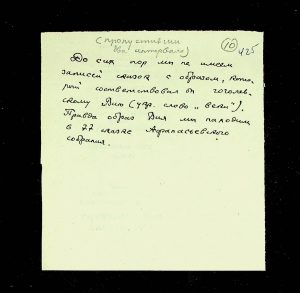 (пропустивши
два интервала)
10
425
До сих пор мы не имеем
записей сказок с образом, кото-
рый соответствовал бы гоголев-
скому Вию (укр. слово „вии“).
Правда образ Вия мы находим
в 77 сказке Афанасьевского
собрания.